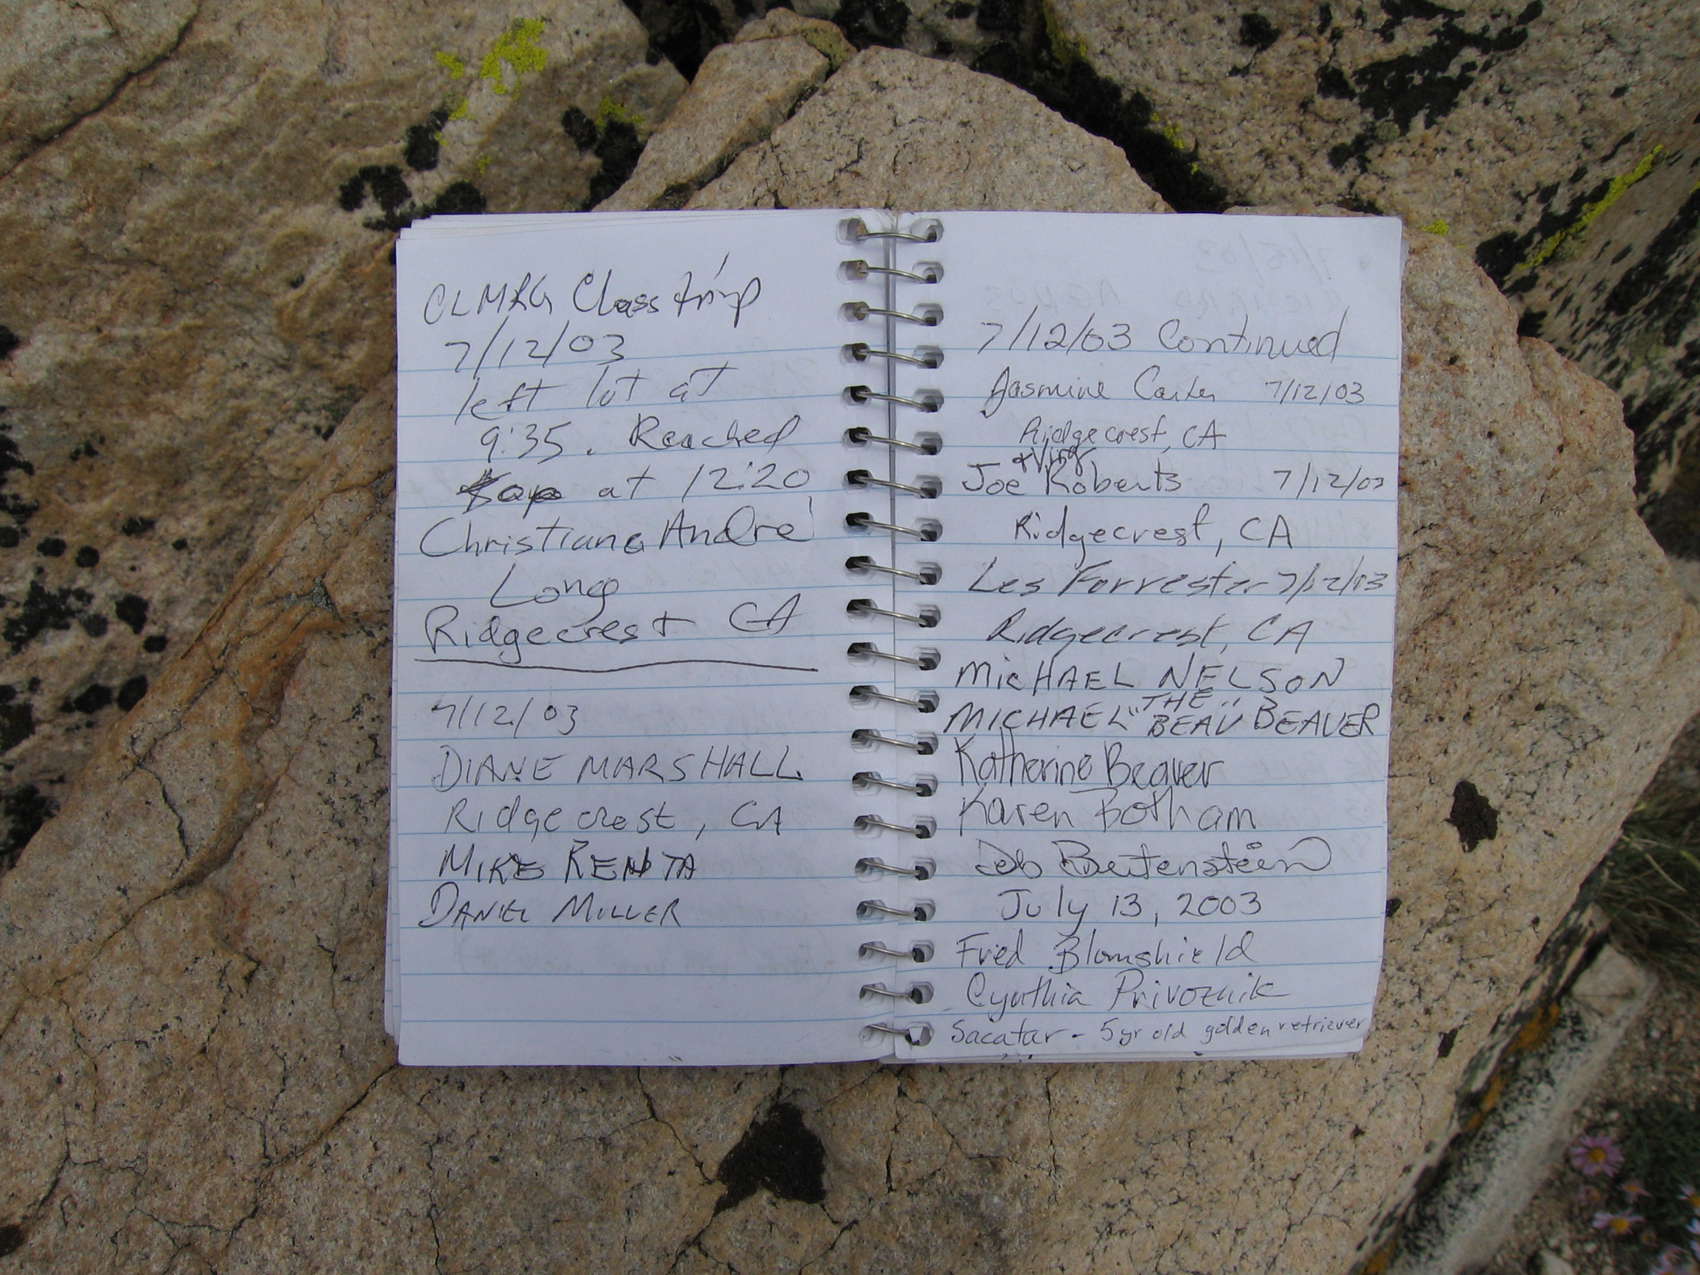 CLMRG Class trip
7/12/03
left lot at
9:35. Reached
top at 12:20
Christiana André
Long
Ridgecrest CA
7/12/03
DIANE MARSHALL
Ridgecrest, CA
MIKE RENTA
DANIEL MILLER
7/12/03 Continued
Jasmine 7/12/03
Ridgecrest, CA
Joe Roberts 7/12/03
Ridgecrest, CA
Les Forrester 7/12/03
Ridgecrest, CA
MICHAEL NELSON
MICHAEL "THE BEAV" BEAVER
Katherine Beaver
Karen Botham
Deb
July 13, 2003
Fred Blomshield
Cynthia Privoznik
Sacatar - 5 yr old golden retriever